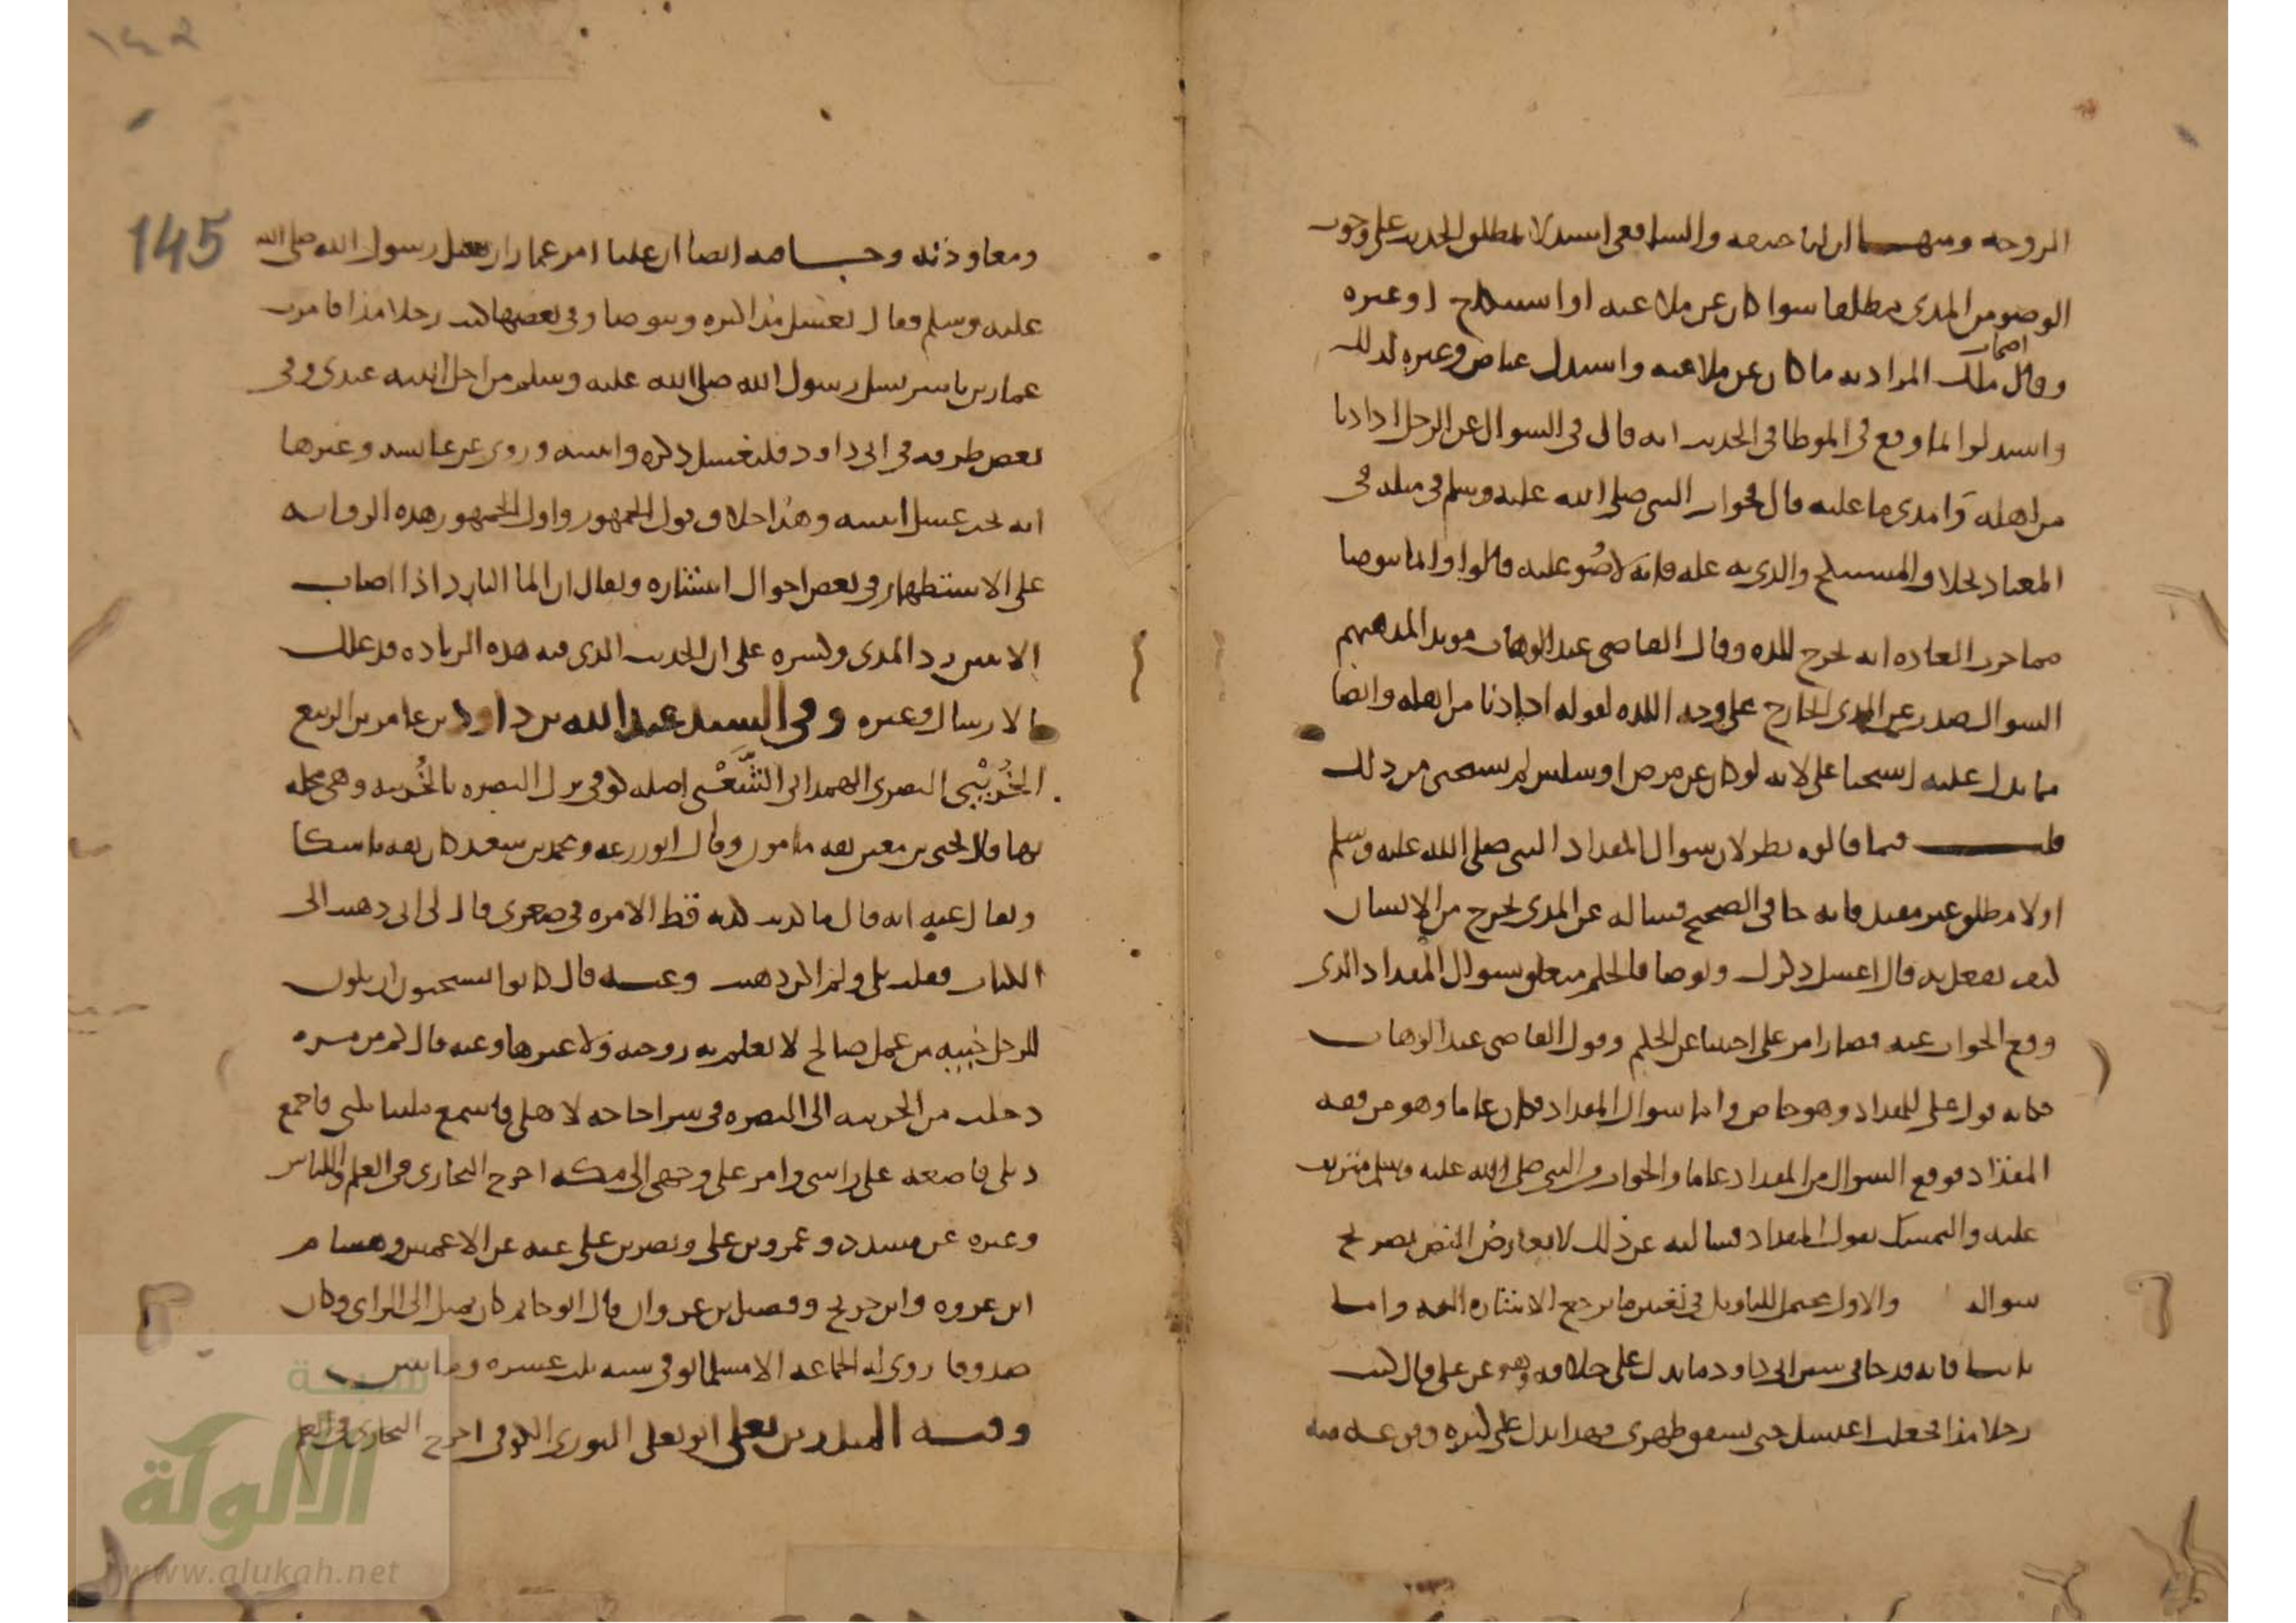 الزوجه ومنهـــا ان ابا حنيفه والشافعي استدلا بمطلق الحديث على وجوب
الوضو من المذي مطلقا سوا كان عن ملاعبه او استنكاح او غيره
وقال اصحاب مالك المراد به ما كان عن ملاعبه واستدل عياض وغيره لذلك
واستدلوا لما وقع في الموطا في الحديث انه قال في السوال عن الرجل اذا دنا
من اهله وامذى ما عليه قال فجواب النبي صلى الله عليه وسلم في مثله في
المعتاد بخلاف المستنكح والذي به عله فانه لا وضو عليه قالوا وانما يتوضا
مما جرت العاده انه يخرج للذه وقال القاضي عبد الوهاب مويدا لمذهبهم
السوال صدر عن المذي الخارج على وجه اللذه لقوله اذا دنا من اهله وايضا
مما يدل عليه استحيا علي لانه لو كان عن مرض او سلس لم يستحي من ذلك
قلـــت فيما قالوه نظر لان سوال المقداد النبي صلى الله عليه وسلم
اولا مطلق غير مقيد فانه جا في الصحيح فساله عن المذي يخرج من الانسان
كيف يفعل به قال اغسل ذكرك وتوضا فالحكم متعلق بسوال المقداد الذي
وقع الجواب عنه فصار امر علي اجنبيا عن الحكم وقول القاضي عبد الوهاب
فكانه قول علي للمقداد وهو خاص واما سوال المقداد فكان عاما وهو من فقه
المقداد فوقع السوال من المقداد عاما والجواب من النبي صلى الله عليه وسلم مترتب
عليه والتمسك بقول المقداد فسالته عن ذلك لا يعارض النص بصريح
سواله والاول محتمل للتاويل في تعيين ما يرجع الاشاره اليه وامـا
ثانيـا فانه قد جا في سنن ابي داود ما يدل على خلافه وهو عن علي قال كنت
رجلا مذا فجعلت اغتسل حتى تشقق ظهري فهذا يدل على كثره وقوعه منه
ومعاودته وجـــا فيه ايضا ان عليا امر عمارا ان يسل رسول الله صلى الله
عليه وسلم فقال يغسل مذاكيره ويتوضا وفي بعضها كنت رجلا مذا فامرت
عمار بن ياسر يسل رسول الله صلى الله عليه وسلم من اجل ابنته عندي وفي
بعض طرقه في ابي داود فليغسل ذكره وانثييه وروي عن عايشه وغيرها
انه يجب غسل انثييه وهذا خلاف قول الجمهور واول الجمهور هذه الروايه
على الاستظهار في بعض احوال انتشاره ويقال ان الما البارد اذا اصاب
الانثيين رد المذي وكسره على ان الحديث الذي فيه هذه الزياده قد علل
بالارسال وغيره وفي السند عبد الله بن داود بن عامر بن الربيع
الخُرَيْبي البصري الهمداني الشَّعْبي اصله كوفي نزل البصره بالخُريبه وهي محله
بها قال يحيى بن معين ثقه مامون وقال ابو زرعه ومحمد بن سعد كان ثقه ناسكا
ويقال عنه انه قال ما كذبت كذبه قط الا مره في صغري قال لي ابي ذهبت الى
الكتاب فقلت بلى ولم اكن ذهبت وعنـــه قال كانوا يستحبون ان يكون
للرجل خبيه من عمل صالح لا تعلم به زوجته ولا غيرها وعنه قال كم من مره
دخلت من الخريبه الى البصره في شرا حاجه لاهلي فاسمع ملبيا يلبي فاجمع
ذيلي فاضعه على راسي وامر على وجهي الى مكه اخرج البخاري في العلم واللباس
وغيره عن مسدد وعمرو بن علي ونصر بن علي عنه عن الاعمش وهشام
ابن عروه وابن جريج وفضيل بن غزوان قال ابو حاتم كان يميل الى الراي وكان
صدوقا روى له الجماعه الا مسلما توفي سنه ثلث عشره ومايتين
وفيـــه المنذر بن يعلى ابو يعلى الثوري الكوفي اخرج البخاري في العلم
145
١٤٢
شبكة
الألوكة
www.alukah.net